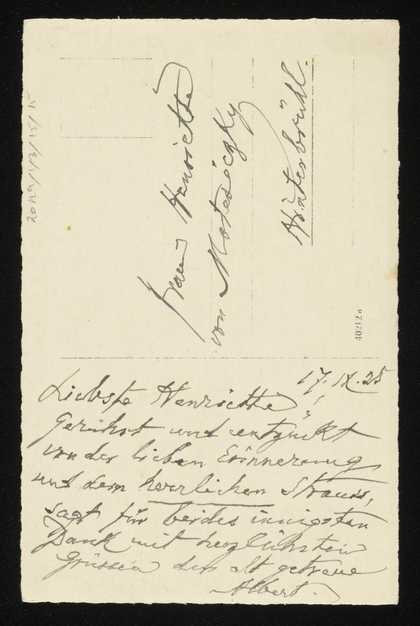 17. IX. 25
Liebste Henriette!
Gerührt und entzückt
von der lieben Erinnerung
und dem herrlichen Strauss,
sagt für beides innigsten
Dank mit herzlichsten
Grüssen der alt getreue
Albert.
Frau Henriette
von Motesiczky
Hinterbrühl.